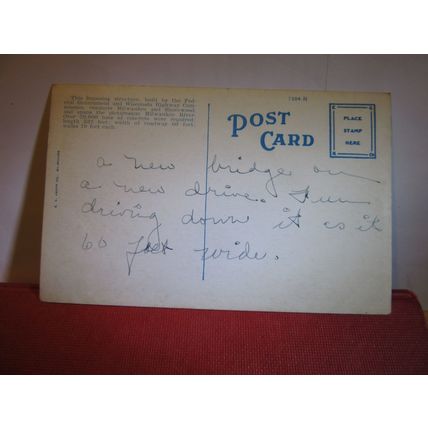 This imposing structure, built by the Fed-
eral Government and Wisconsin Highway Com-
mission, connects Milwaukee and Shorewood
and spans the picturesque Milwaukee River.
Over 20,000 tons of concrete were required
length 531 feet; width of roadway 60 feet,
walks 10 feet each.
POST
CARD
PLACE
STAMP
HERE
a new bridge on
a new drive. Fun
driving down it as it
60 feet wide.